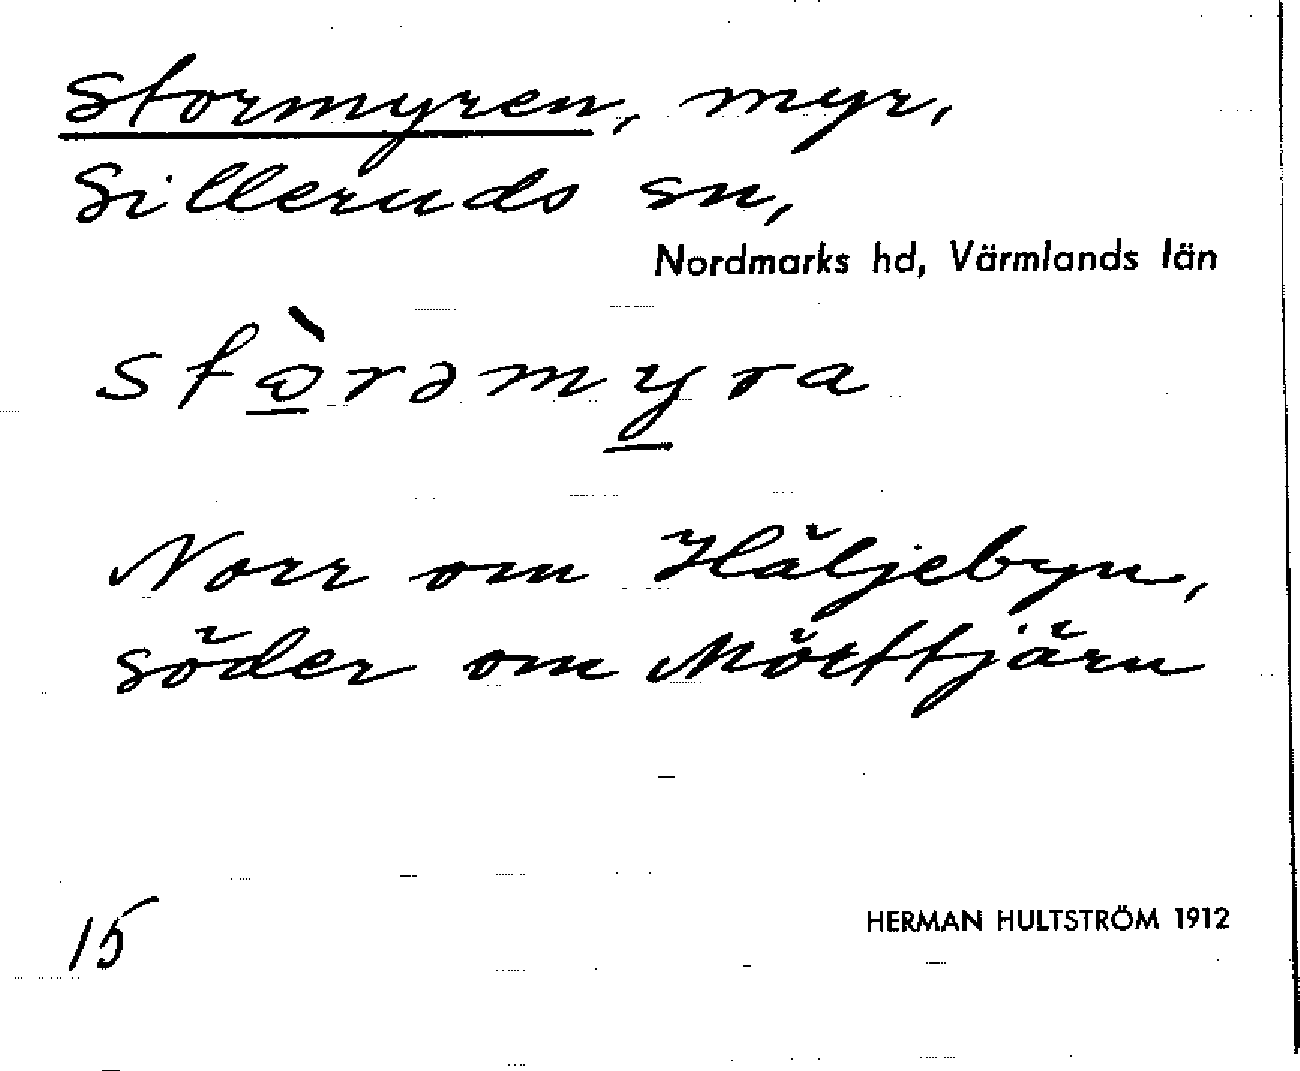 Stormyren, myr,
Silleruds sn,
Nordmarks hd, Värmlands län
stὼ̱rəmy̱ra
Norr om Häljebyn,
söder om Mörttjärn
15
HERMAN HULTSTRÖM 1912